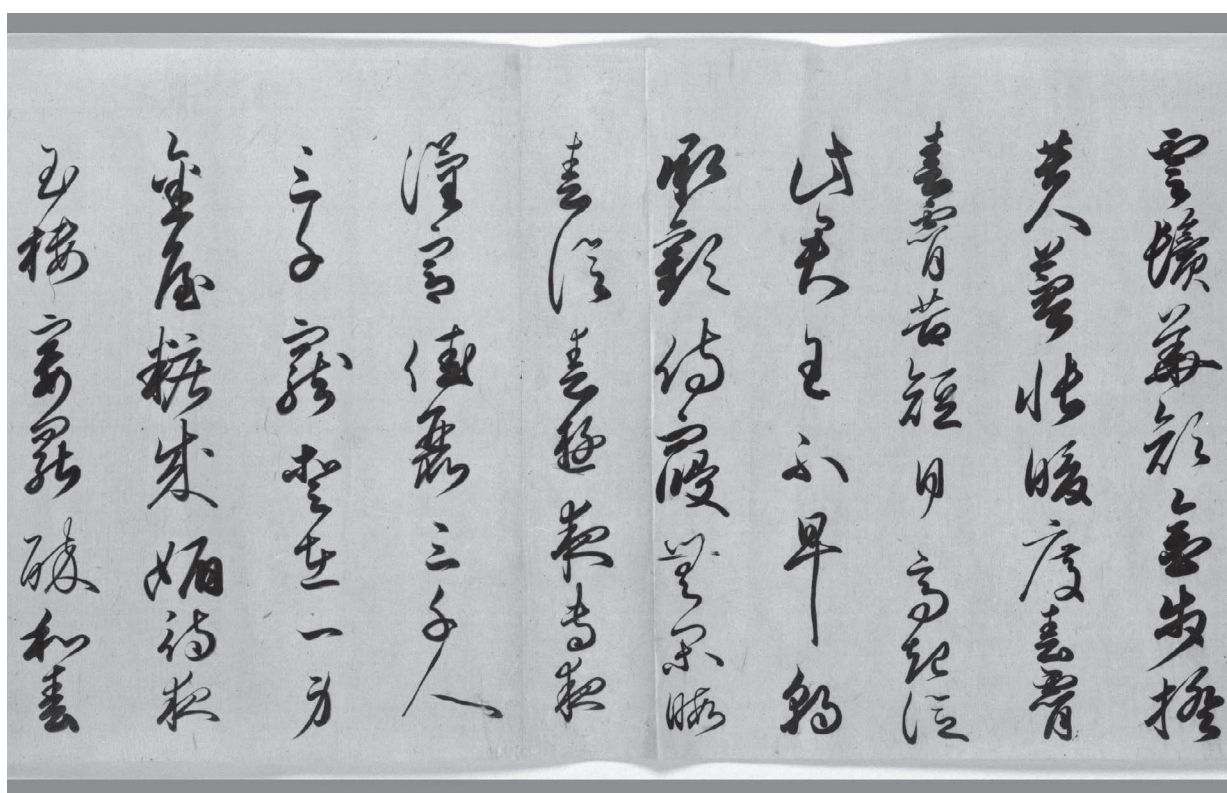 雲鬢華顔金步搖
芙蓉帳暖度春霄
春霄苦短日高起從
此君王不早朝
承歡侍寢無閑暇
春從春遊夜專夜
漢宮佳麗三千人
三千寵愛在一身
金屋粧成嬌侍夜
玉樓宴罷醉和春